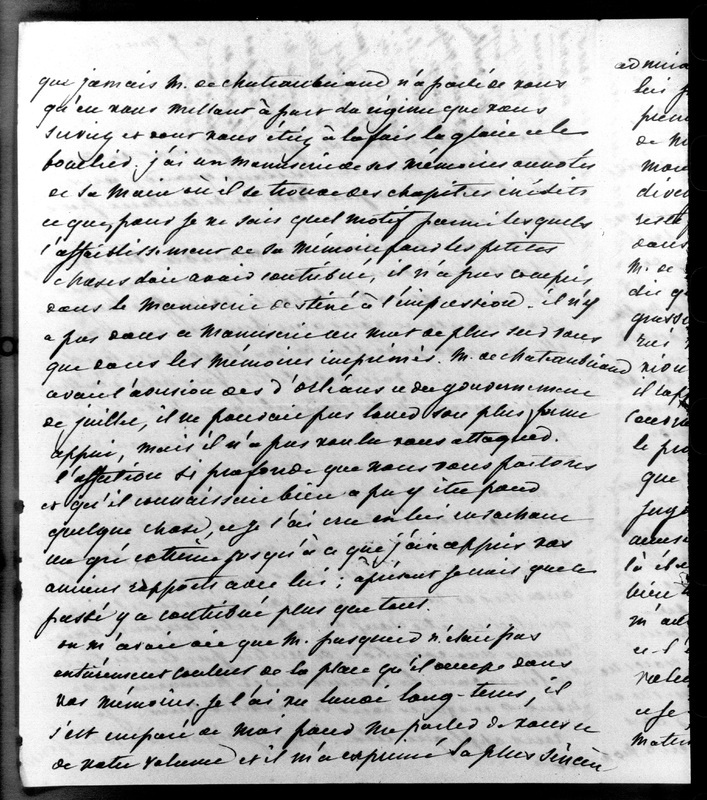 que jamais M. de chateaubriand n'a parlé de vous
qu'en vous mettant à part du régime que vous
serviez et dont vous étiez à la fois la gloire et le
bouclier. j'ai un manuscrit de ses mémoires annotés
de sa main où il se trouve des chapitres inédits
et que, pour je ne sais quel motif parmi lesquels
l'affaiblissement de sa mémoire pour les petites
choses doit avoir contribué, il n'a pas compris
dans le manuscrit destiné à l'impression. il n'y
a pas dans ce manuscrit un mot de plus sur vous
que dans les mémoires imprimés. M. de chateaubriand
avait l'aversion des d'Orléans et du gouvernement
de juillet, il ne pouvait pas louer son plus ferme
appui, mais il n'a pas voulu vous attaquer.
l'affection si profonde que nous vous portons
et qu'il connaissait bien a pu y être pour
quelque chose, et je l'ai cru en lui en sachant
un gré extrême jusqu'à ce que j'aie appris vos
anciens rapports avec lui : à présent je vois que le
passé y a contribué plus que tout.
on m'avait dit que M. pasquier n'était pas
entièrement content de la place qu'il occupe dans
vos mémoires. je l'ai vu lundi long-tems, il
s'est emparé de moi pour me parler de vous et
de votre volume et il m'a exprimé la plus sincère